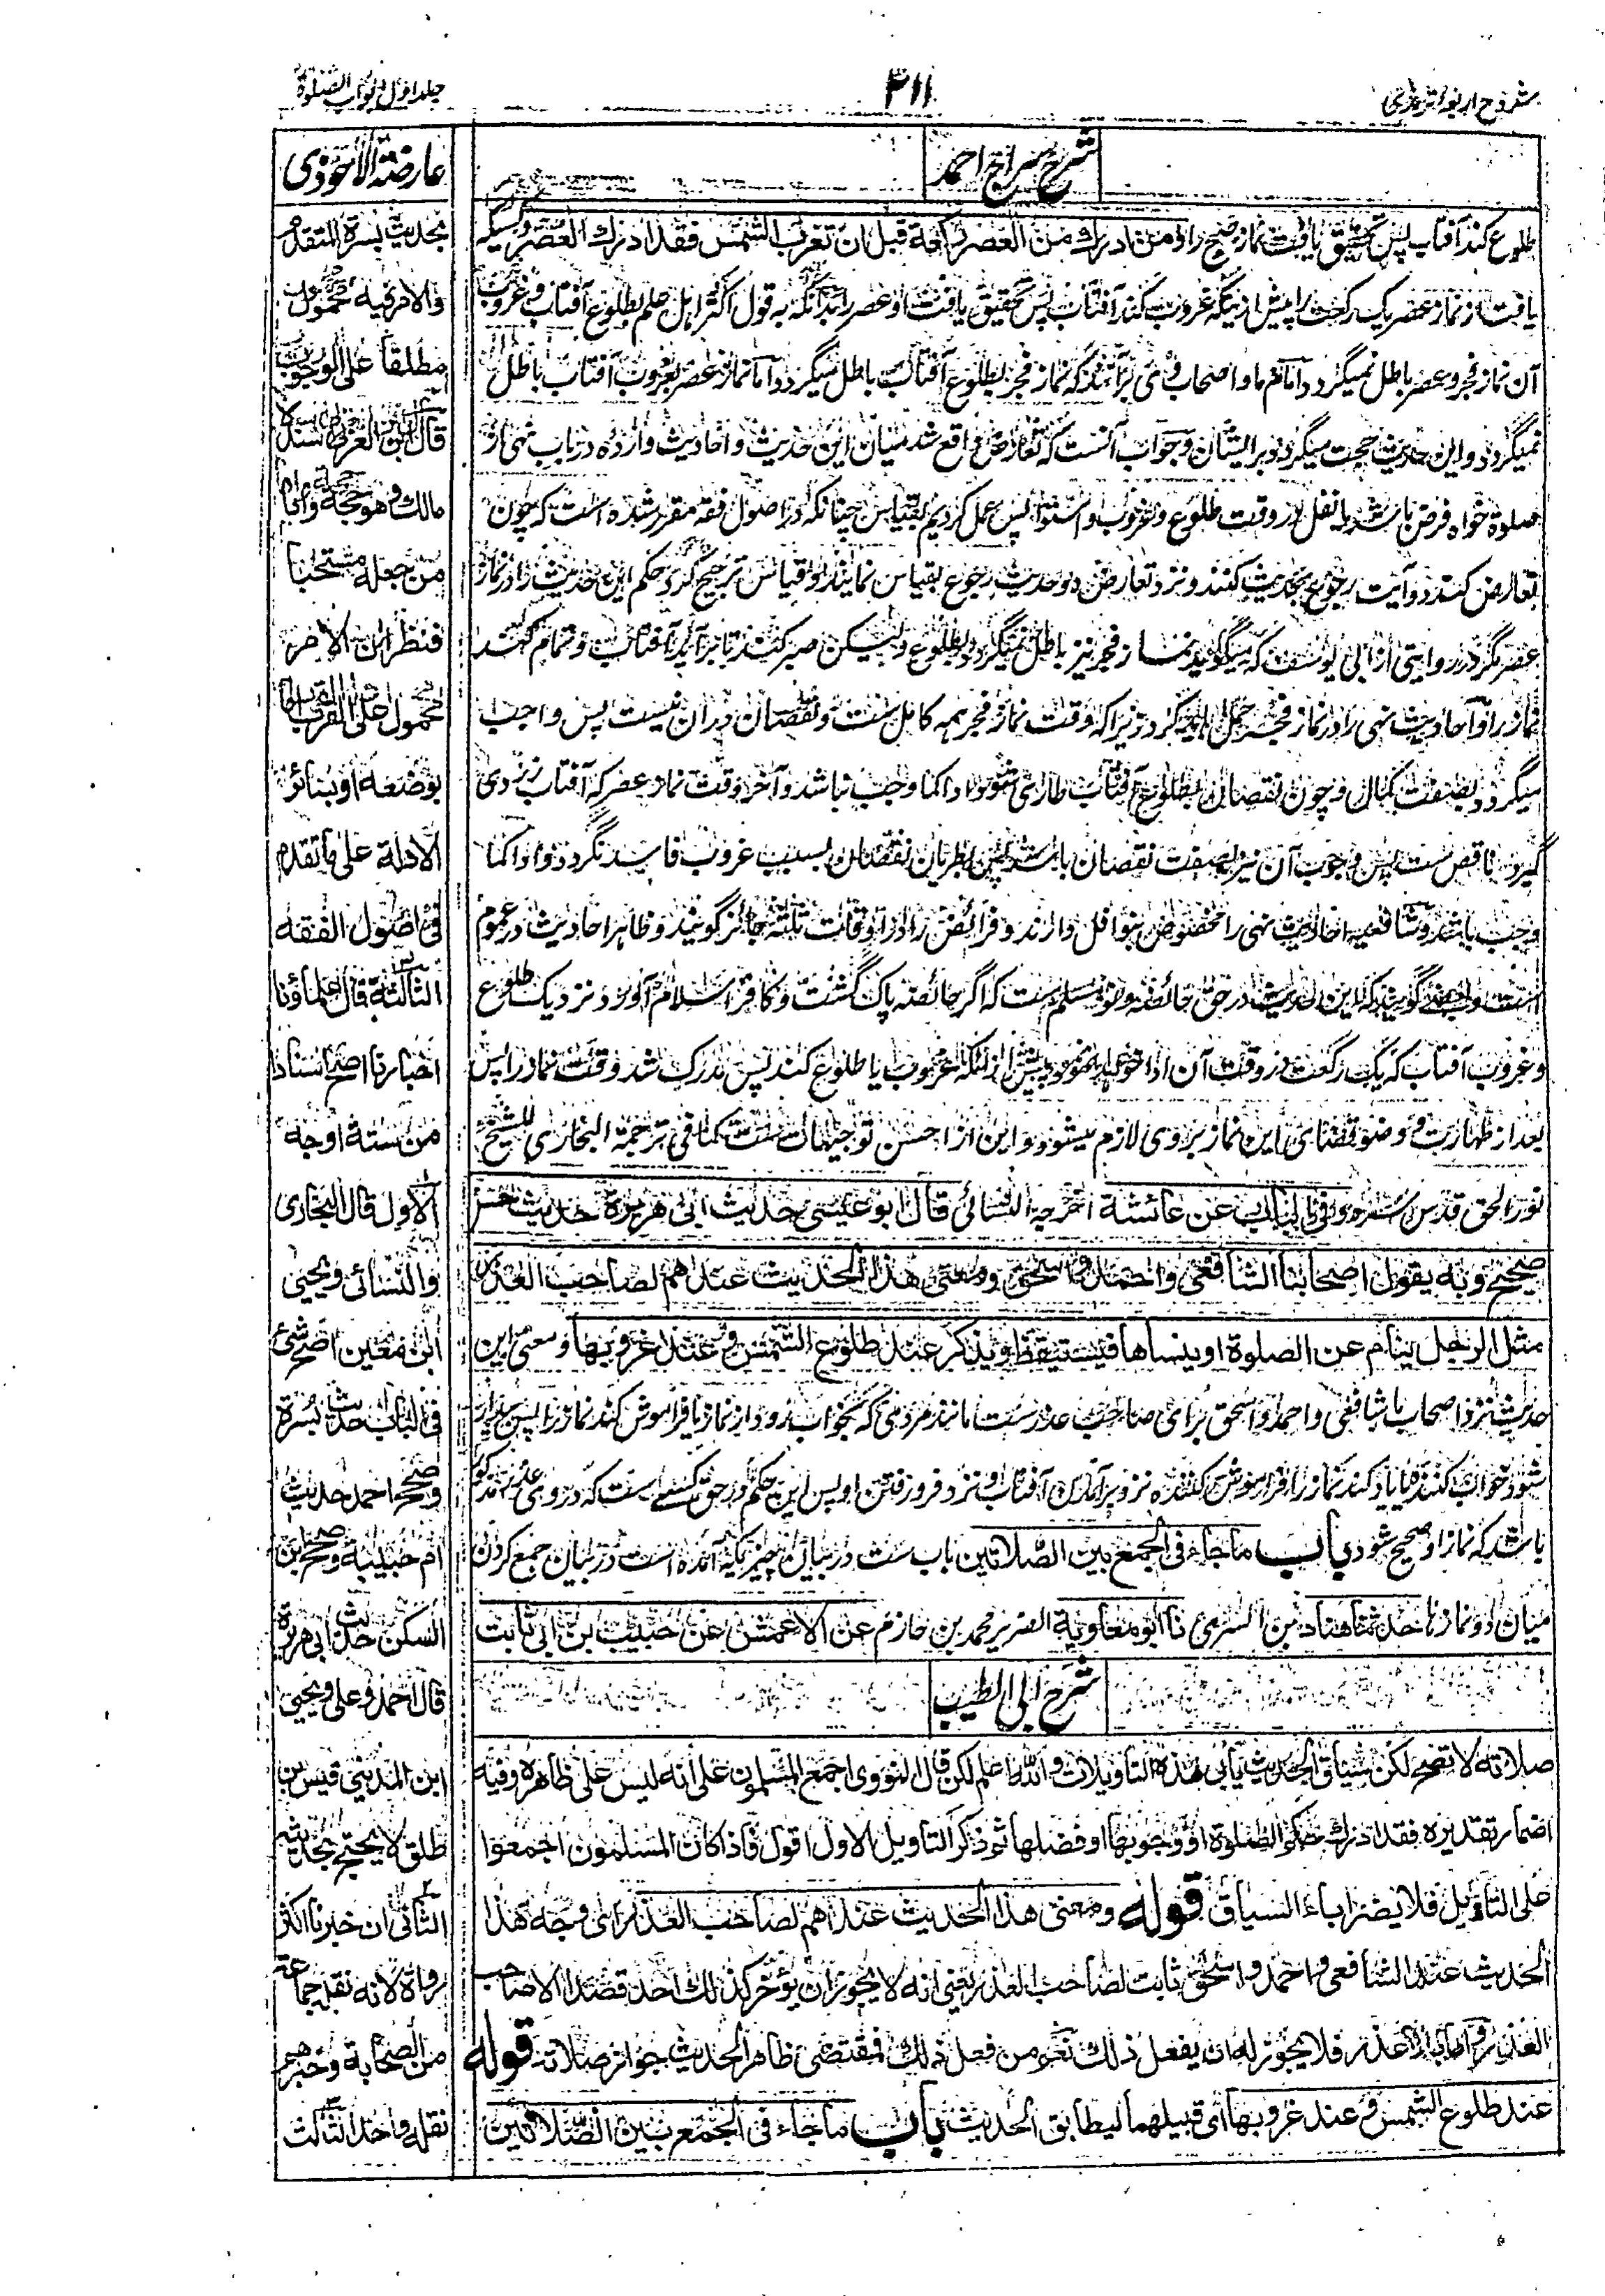 شروح اربعه ترمذی
۳۱۱
جلد اول ابواب الصلوة
شرح سراج احمد
طلوع کند آفتاب پس تحقیق یافت نماز صبح را ومن ادرك من العصر ركعة قبل ان تغرب الشمس فقد ادرك العصر وکسیکه
یافت از نماز عصر یک رکعت را پیش ازینکه غروب کند آفتاب پس تحقیق یافت او عصر را بدانکه به قول اکثر اهل علم بطلوع آفتاب و غروب
آن نماز فجر و عصر باطل نمیگردد و امام ما و اصحاب وی برآنند که نماز فجر بطلوع آفتاب باطل میگردد و اما نماز عصر بغروب آفتاب باطل
نمیگردد و این حدیث حجت میگردد بر ایشان و جواب آنست که تعارض واقع شد میان این حدیث و احادیث وارده در باب نهی از
صلوة خواه فرض باشد یا نفل در وقت طلوع و غروب و استوا پس عمل کردیم بقیاس چنانکه در اصول فقه مقرر شده است که چون
تعارض کنند دو آیت رجوع بحدیث کنند و نزد تعارض دو حدیث رجوع بقیاس نمایند و قیاس ترجیح کرد حکم این حدیث را در نماز
عصر مگر در روایتی از ابی یوسف که میگوید نماز فجر نیز باطل نمیگردد بطلوع ولیکن صبر کند تا برآید آفتاب و تمام کند
نماز را و احادیث نهی را در نماز فجر حمل کرد زیرا که وقت نماز فجر همه کامل ست و نقصان در آن نیست پس واجب
میگردد بصفت کمال و چون نقصان بطلوع آفتاب طاری شود ادا کما وجب نباشد و آخر وقت نماز عصر که آفتاب زردی
گیرد ناقص ست پس وجوب آن نیز بصفت نقصان باشد پس بطریان نقصان بسبب غروب فاسد نگردد و ادا کما
وجب باشد و شافعیه احادیث نهی را مخصوص بنوافل دارند و فرائض را در اوقات ثلثه جائز گویند و ظاهر احادیث در عموم
است و بعضے گویند که این حدیث در حق حائضه و نو مسلم ست که اگر حائضه پاک گشت و کافر اسلام آورد نزدیک طلوع
و غروب آفتاب که یک رکعت در وقت آن ادا خواهد نمود پیش ازانکه غروب یا طلوع کند پس مدرک شد وقت نماز را پس
بعد از طهارت و وضو قضای این نماز بر وی لازم میشود و این از احسن توجیهات ست کما فی ترجمة البخاری للشیخ
نور الحق قدس سره وفي الباب عن عائشة اخرجه النسائی قال ابو عيسى حديث ابى هريرة حديث حسن
صحيح وبه يقول اصحابنا الشافعى واحمد واسحق ومعنى هذا الحديث عندهم لصاحب العذر
مثل الرجل ينام عن الصلوة او ينساها فيستيقظ ويذكر عند طلوع الشمس وعند غروبها و معنی این
حدیث نزد اصحاب ما شافعی و احمد و اسحق برای صاحب عذر ست مانند مردمی که بخواب رود از نماز یا فراموش کند نماز را پس بیدار
شود خواب کننده یا یاد کند نماز را فراموش کننده نزد برآمدن آفتاب و نزد فرو رفتن او پس این حکم در حق کسے است که در وی عذر مذکور
باشد که نماز او صحیح شود باب ما جاء فى الجمع بين الصلاتين باب ست در بیان چیزیکه آمده است در بیان جمع کردن
میان دو نمازها حدثنا هناد بن السرى نا ابو معاوية الضرير محمد بن خازم عن الاعمش عن حبيب بن ابى ثابت
شرح ابی الطیب
صلاته لا تصح لكن سياق الحديث يأبى هذه التأويلات والله اعلم لكن قال النووى اجمع المسلمون على انه ليس على ظاهره وفيه
اضمار تقديره فقد ادرك حكم الصلوة او وجوبها او فضلها ثم ذكر التاويل الاول اقول فاذا كان المسلمون اجمعوا
على التأويل فلا يضر اباء السياق قوله ومعنى هذا الحديث عندهم لصاحب العذر اى وجه هذا
الحديث عند الشافعى واحمد واسحق ثابت لصاحب العذر يعنى انه لا يجوز ان يؤخر كذلك احد قصدا الا صاحب
العذر واما بلا عذر فلا يجوز له ان يفعل ذلك نعم من فعل ذلك فمقتضى ظاهر الحديث جواز صلاته قوله
عند طلوع الشمس وعند غروبها اى قبيلهما ليطابق الحديث باب ما جاء فى الجمع بين الصلاتين
عارضة الأحوذى
بحديث بسرة المتقدم
والامر فيه محمول
مطلقا على الوجوب
قال ابن العربى اسنده
مالك وهو حجة واما
من جعله مستحبا
فنظر ان الامر
محمول على القرب اما
بوضعه او بنائر
الادلة على ما تقدم
فى اصول الفقه
الثالثة قال علماؤنا
اخبارنا اصح اسنادا
من ستة اوجه
الاول قال البخارى
والنسائى ويحيى
ابن معين اصح شئ
فى الباب حديث بسرة
وصحح احمد حديث
ام حبيبة وصحح ابن
السكن حديث ابى هريرة
قال احمد وعلى ويحيى
ابن المدينى قيس بن
طلق لا يحتج بحديثه
الثانى ان خبرنا اكثر
رواة لانه نقله جماعة
من الصحابة وخبرهم
نقله واحد الثالث